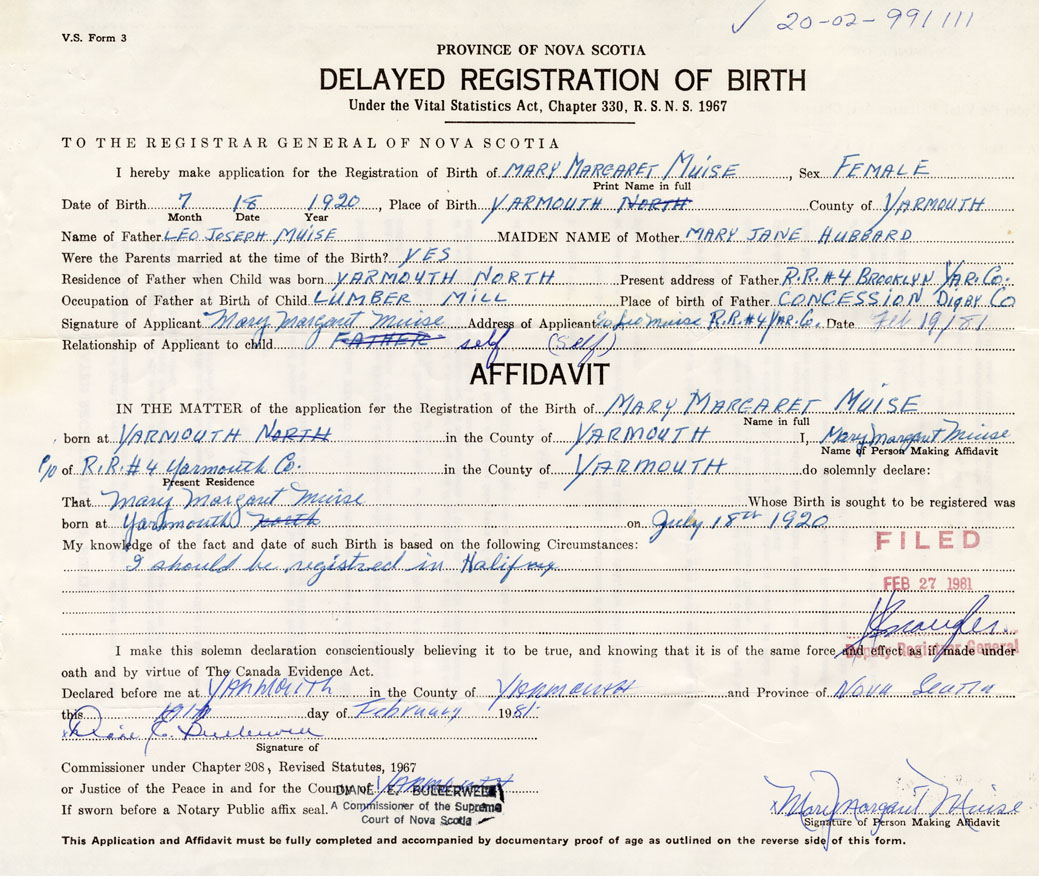 V.S. Form 3
✓ 20-02-991111
PROVINCE OF NOVA SCOTIA
DELAYED REGISTRATION OF BIRTH
Under the Vital Statistics Act, Chapter 330, R. S. N. S. 1967
TO THE REGISTRAR GENERAL OF NOVA SCOTIA
I hereby make application for the Registration of Birth of MARY MARGARET MUISE, Sex FEMALE
Print Name in full
Date of Birth 7 18 1920, Place of Birth YARMOUTH NORTH County of YARMOUTH
Month Date Year
Name of Father LEO JOSEPH MUISE MAIDEN NAME of Mother MARY JANE HUBBARD
Were the Parents married at the time of the Birth? YES
Residence of Father when Child was born YARMOUTH NORTH Present address of Father R.R.#4 BROOKLYN YAR. CO.
Occupation of Father at Birth of Child LUMBER MILL Place of birth of Father CONCESSION DIGBY CO
Signature of Applicant Mary Margaret Muise Address of Applicant Muise R.R.#4 YAR. Co. Date Feb 19/81
Relationship of Applicant to child FATHER self (Self)
AFFIDAVIT
IN THE MATTER of the application for the Registration of the Birth of MARY MARGARET MUISE
Name in full
born at YARMOUTH NORTH in the County of YARMOUTH I, Mary Margaret Muise
Name of Person Making Affidavit
of R.R.#4 Yarmouth Co. in the County of YARMOUTH do solemnly declare:
Present Residence
That Mary Margaret Muise Whose Birth is sought to be registered was
born at Yarmouth North on July 18th 1920
My knowledge of the fact and date of such Birth is based on the following Circumstances:
FILED
I should be registred in Halifax
FEB 27 1981
I make this solemn declaration conscientiously believing it to be true, and knowing that it is of the same force and effect as if made under
Deputy Registrar General
oath and by virtue of The Canada Evidence Act.
Declared before me at YARMOUTH in the County of YARMOUTH and Province of NOVA SCOTIA
this 19th day of February 1981.
Diane E. Bullerwell
Signature of
Commissioner under Chapter 208, Revised Statutes, 1967
or Justice of the Peace in and for the County of YARMOUTH
DIANE E. BULLERWELL
If sworn before a Notary Public affix seal.
A Commissioner of the Supreme
Court of Nova Scotia
x Mary Margaret Muise
Signature of Person Making Affidavit
This Application and Affidavit must be fully completed and accompanied by documentary proof of age as outlined on the reverse side of this form.